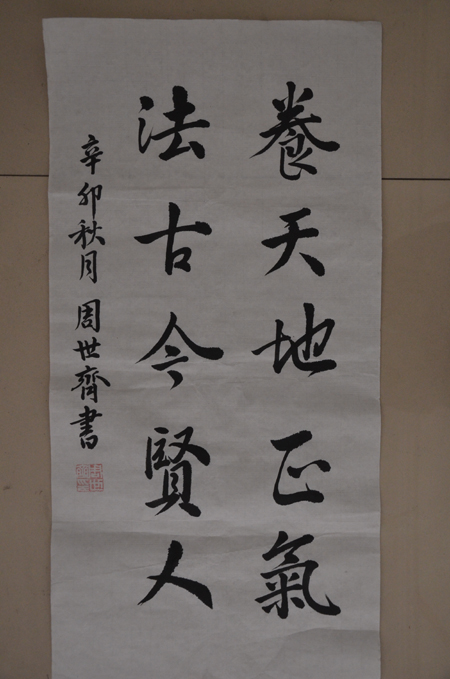 養天地正氣
法古今賢人
辛卯秋月周世齊書